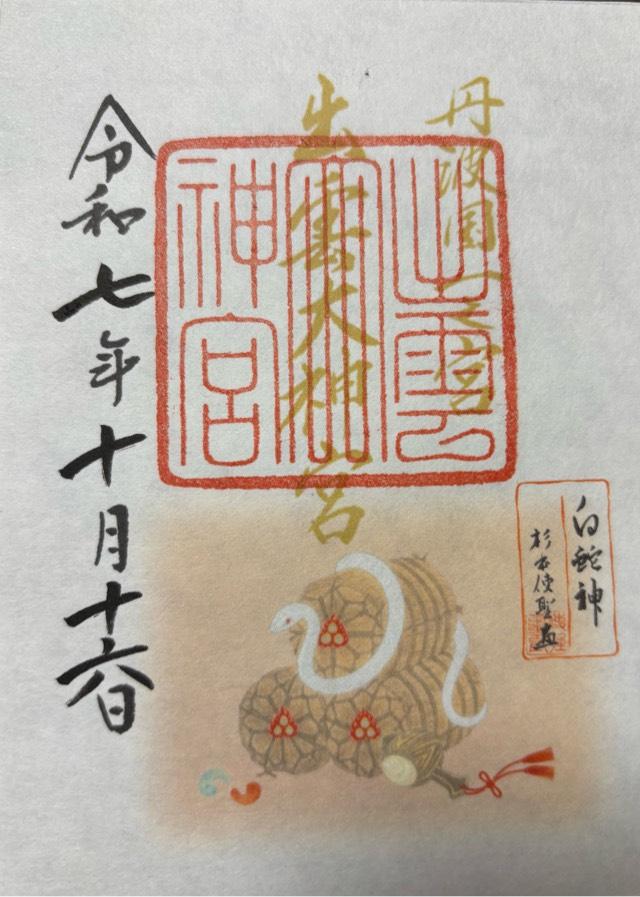 丹波國一之宮
出雲大神宮
出雲大神宮
令和七年十月十六日
白蛇神